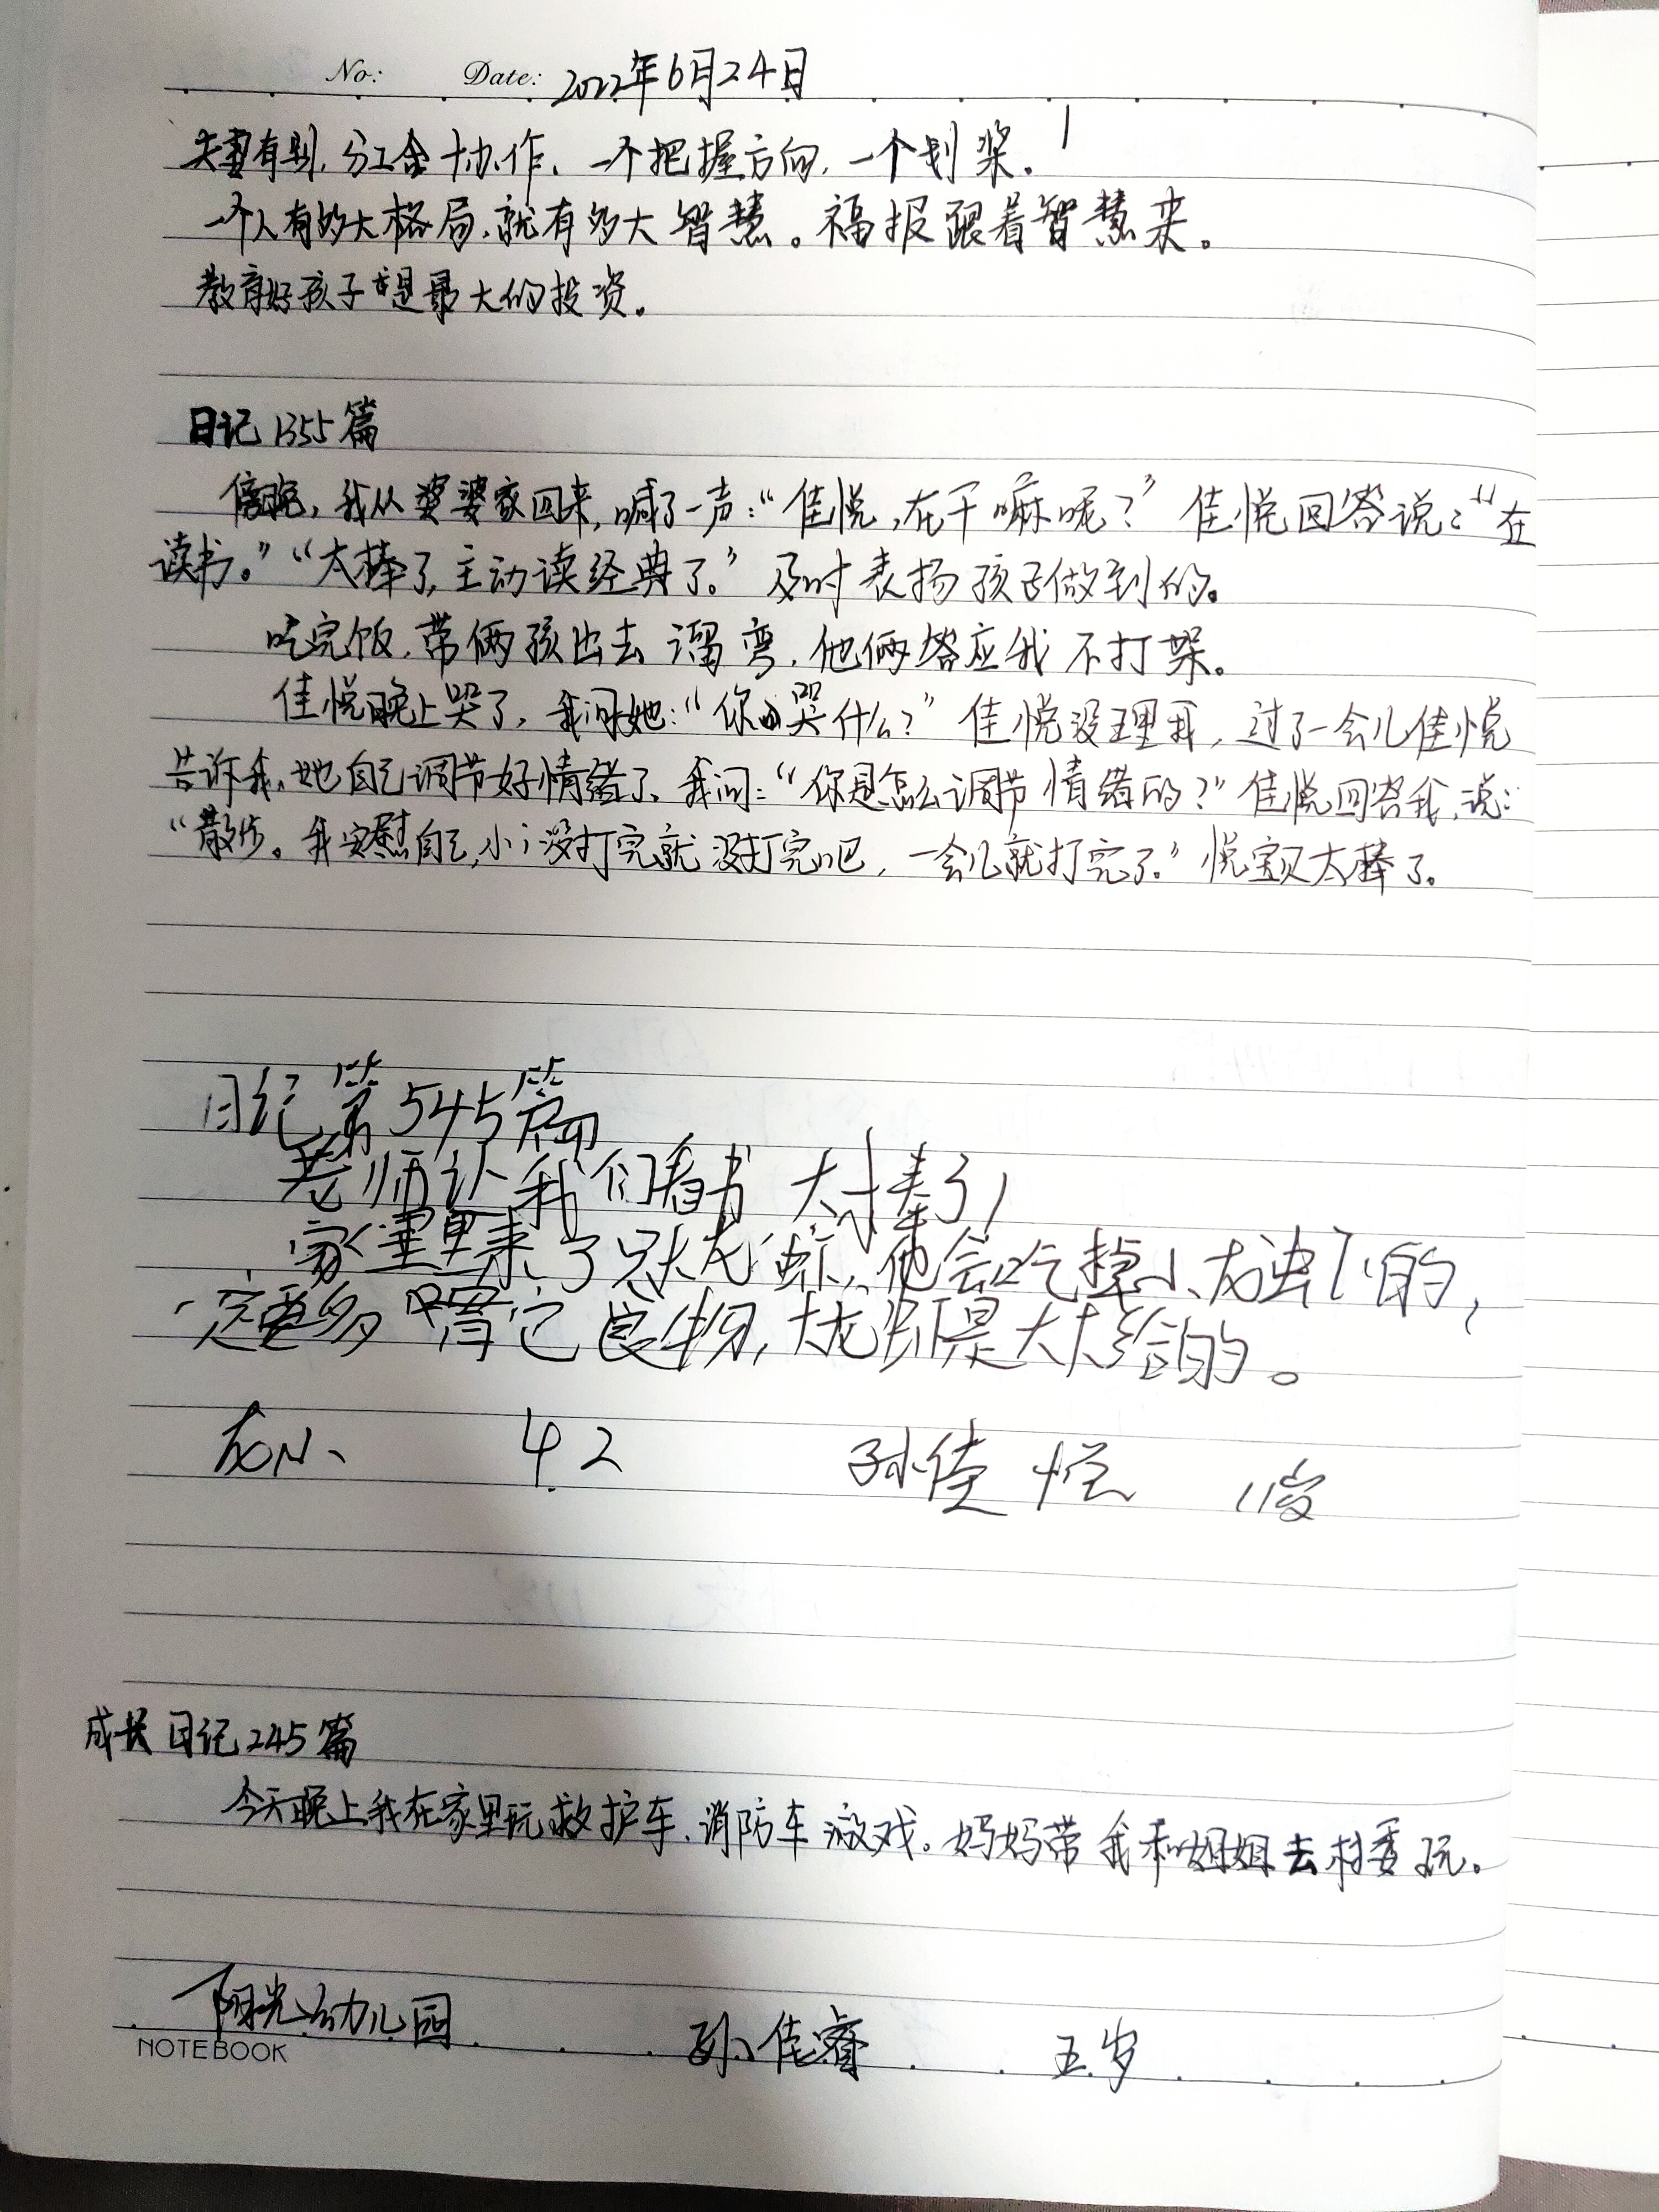 No: Date: 2022年6月24日
夫妻有别,分工合协作、一个把握方向,一个划桨.
一个人有多大格局,就有多大智慧。福报跟着智慧来。
教育好孩子才是最大的投资。
日记1355篇
傍晚,我从婆婆家回来,喊了一声:“佳悦,在干嘛呢?”佳悦回答说:“在
读书。”“太棒了,主动读经典了。”及时表扬孩子做到的。
吃完饭,带俩孩出去溜弯,他俩答应我不打架。
佳悦晚上哭了,我问她:“你哭什么?”佳悦没理我,过了一会儿佳悦
告诉我,她自己调节好情绪了、我问:“你是怎么调节情绪的?”佳悦回答我,说:
“散步。我安慰自己,没打完就没打完吧,一会儿就打完了。”悦宝贝太棒了。
日记第545篇
老师让我们看书 太棒了!
家里来了只大龙虾,他会吃掉小龙虾的,
一定要多喂它食物,大龙虾是大大给的。
4.2 孙佳悦 11岁
成长日记245篇
今天晚上我在家里玩救护车、消防车游戏。妈妈带我和姐姐去村委玩。
阳光幼儿园 孙佳睿 五岁
NOTEBOOK